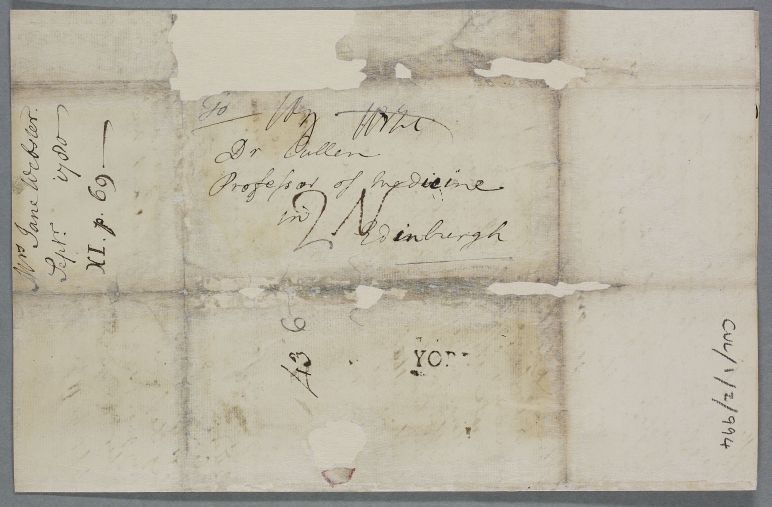 Mrs Jane Webster.
Septr. 1780
XI. p. 69
To
Dr Cullen
Professor of Medicine
in 2N
Edinburgh
43 6
YORK
CUL/1/2/994